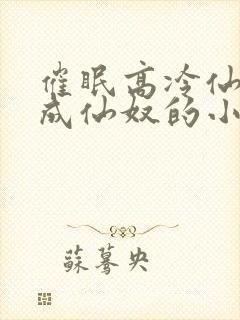 催眠高冷仙
成仙奴的小
蘇驀央